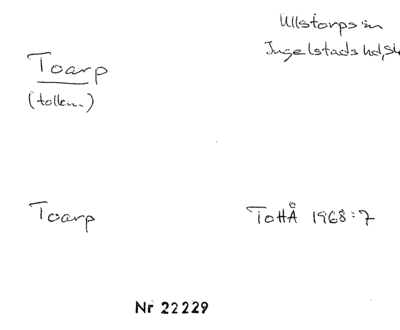 Ullstorps sn
Ingelstads hd, Sk
Toarp
(tolkn.)
Toarp
ToHÅ 1968:7
Nr 22229